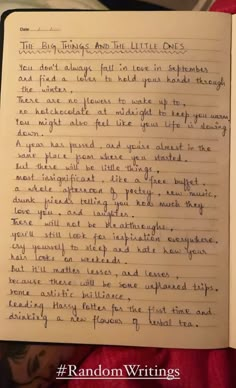 Date
THE BIG THINGS AND THE LITTLE ONES
You don't always fall in love in September
and find a lover to hold your hands through
the winter.
There are no flowers to wake up to,
no hotchocolate at midnight to keep you warm,
You might also feel like your life is slowing
down.
A year has passed, and you're almost in the
same place from where you started.
But there will be little things,
most insignificant, like a free buffet,
a whole afternoon of poetry, new music,
drunk friends telling you how much they
love you, and laughter.
There will not be breakthroughs,
you'll still look for inspiration everywhere,
cry yourself to sleep and hate how your
hair looks on weekends.
But it'll matter lesser, and lesser,
because there will be some unplanned trips,
some artistic brilliance,
Reading Harry Potter for the first time and
drinking a new flavour of herbal tea.
#RandomWritings